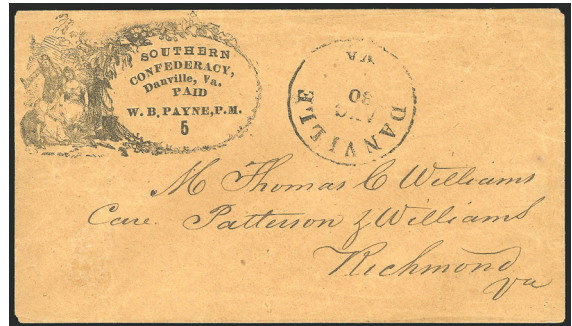 SOUTHERN
CONFEDERACY,
Danville, Va.
PAID
W. B. PAYNE, P. M.
5
DANVILLE
VA
AUG
30
M Thomas C Williams
Care Patterson & Williams
Richmond
Va